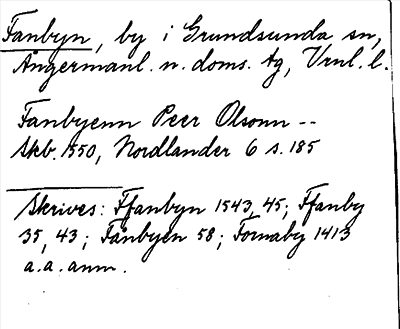 Fanbyn, by i Grundsunda sn,
Ångermanl. n. doms. tg, Vrnl. l.
Fanbyenn Peer Olsonn --
Skb. 1550, Nordlander 6 s. 185
Skrives: Ffanbyn 1543, 45; Ffanby
35, 43; Fanbyen 58; Fornaby 1413
a.a. anm.